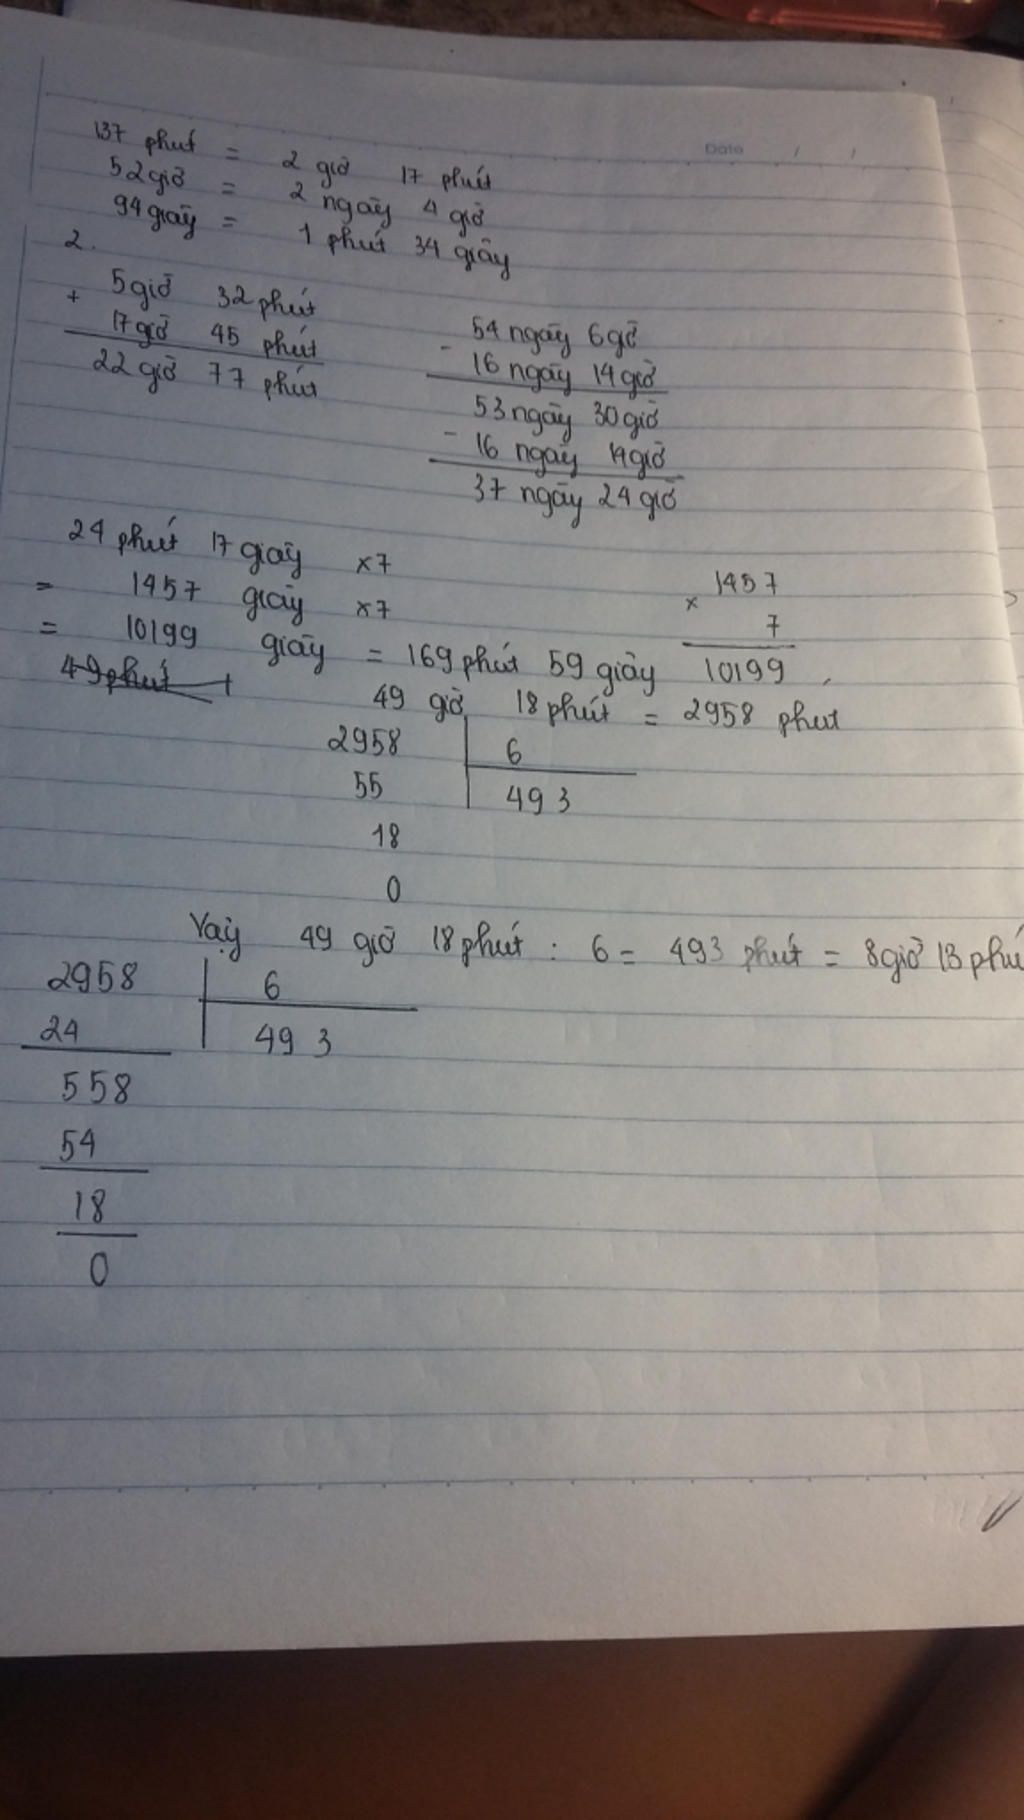 Date / /
137 phút = 2 giờ 17 phút
52 giờ = 2 ngày 4 giờ
94 giây = 1 phút 34 giây
2.
+ 5 giờ 32 phút
17 giờ 45 phút
22 giờ 77 phút
54 ngày 6 giờ
- 16 ngày 14 giờ
53 ngày 30 giờ
- 16 ngày 14 giờ
37 ngày 24 giờ
24 phút 17 giây x7
= 1457 giây x7
= 10199 giây = 169 phút 59 giây
1457
x 7
10199
49 phút
49 giờ 18 phút = 2958 phut
2958 6
55 493
18
0
Vaỵ 49 giờ 18 phút : 6 = 493 phút = 8 giờ 13 phú
2958 6
24 493
558
54
18
0